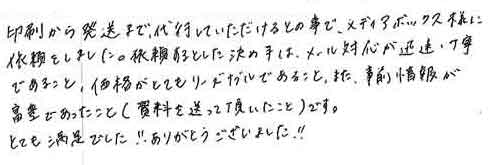 印刷から発送まで、代行していただけるとの事で、メディアボックス様に
依頼をしました。依頼するとした決め手は、メール対応が迅速・丁寧
であること、価格がとてもリーズナブルであること、また、事前情報が
豊富であったこと(資料を送って頂いたこと)です。
とても満足でした!!ありがとうございました!!